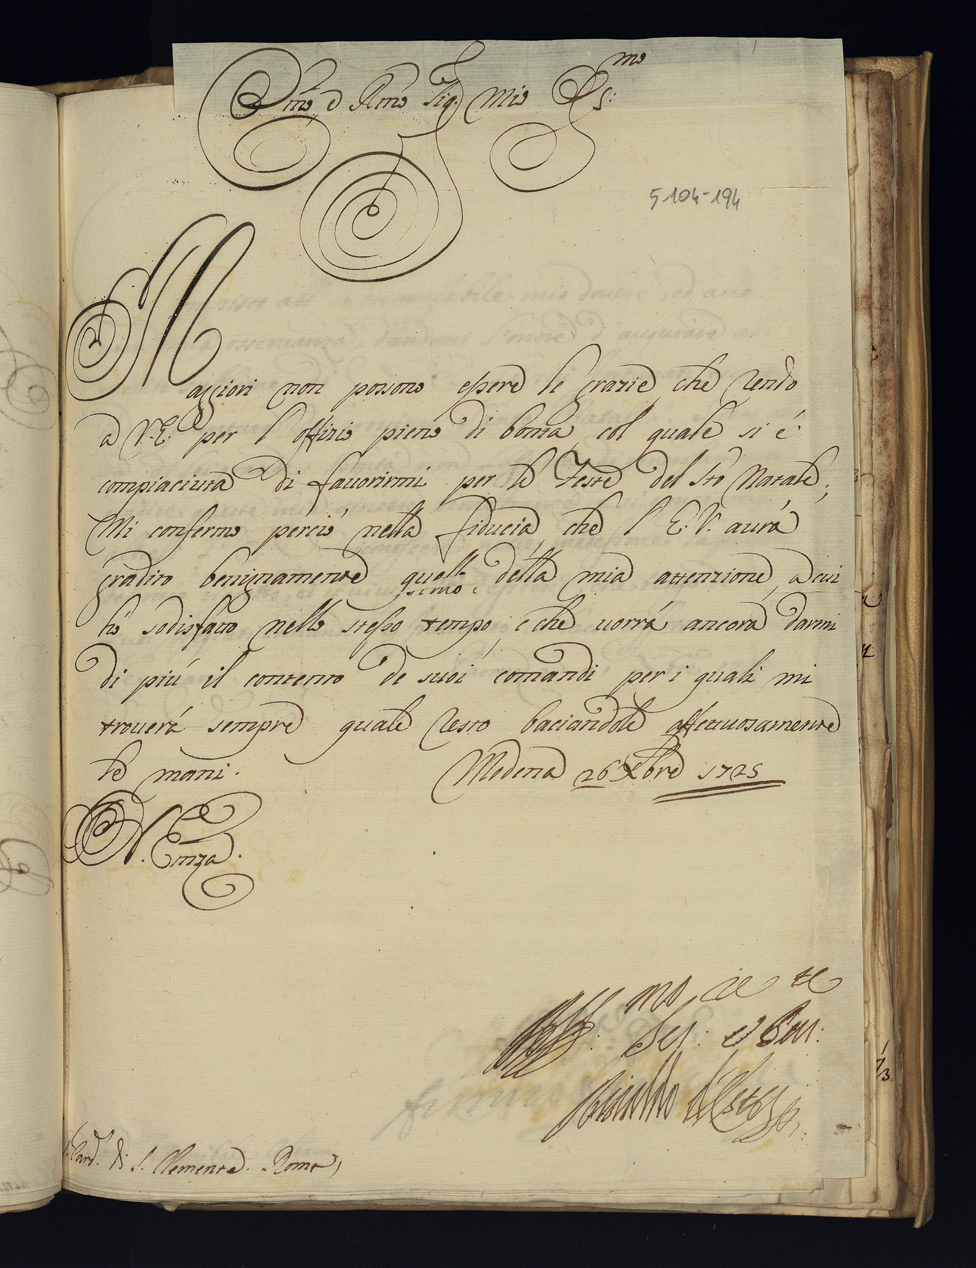 Emo e Rmo Sig.re Mio Oss:mo
5104-194
Maggiori non possono essere le grazie che rendo
a V.E. per l'offizio pieno di bontà col quale si è
compiaciuta di favorirmi per le Feste del Sto Natale;
Mi confermo perciò nella fiducia che l'E.V. avrà
gradito benignamente quelle della mia attenzione, a cui
hò sodisfatto nello stesso tempo e che vorrà ancora darmi
di più il contento de suoi comandi per i quali mi
troverà sempre quale resto baciandole affettuosamente
le mani. Modena 26 Xbre 1725
V. Emza.
Aff:mo
Ser:
Rinaldo d'Este
Card. di S. Clemente. Roma